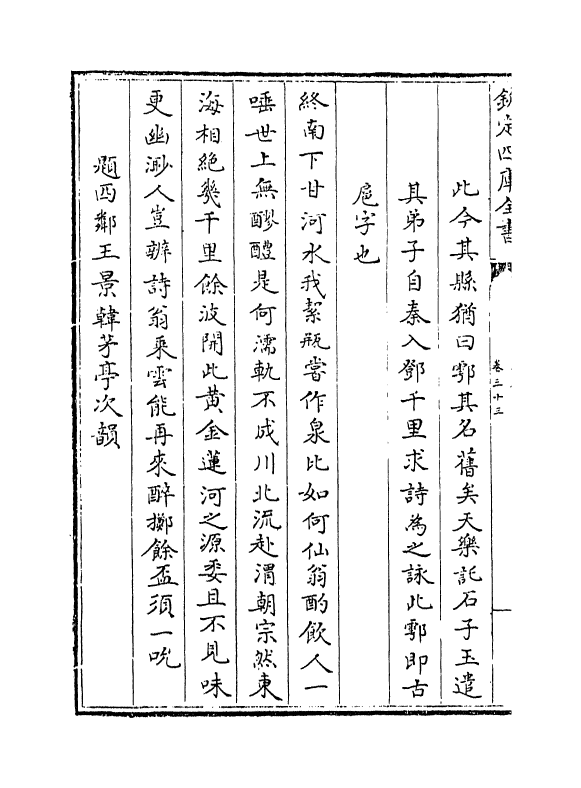 欽定四庫全書
卷三十三
此今其縣猶曰鄠其名舊矣天樂託石子玉遣
其弟子自秦入鄧千里求詩為之詠此鄠即古
扈字也
終南下甘河水我絜瓶嘗作泉比如何仙翁酌飲人一
唾世上無醪醴是何濡軌不成川北流赴渭朝宗然東
海相絶幾千里餘波開此黄金蓮河之源委且不見味
更幽渺人豈辨詩翁乗雲能再來醉擲餘盃須一吮
題西鄰王景韓茅亭次韻